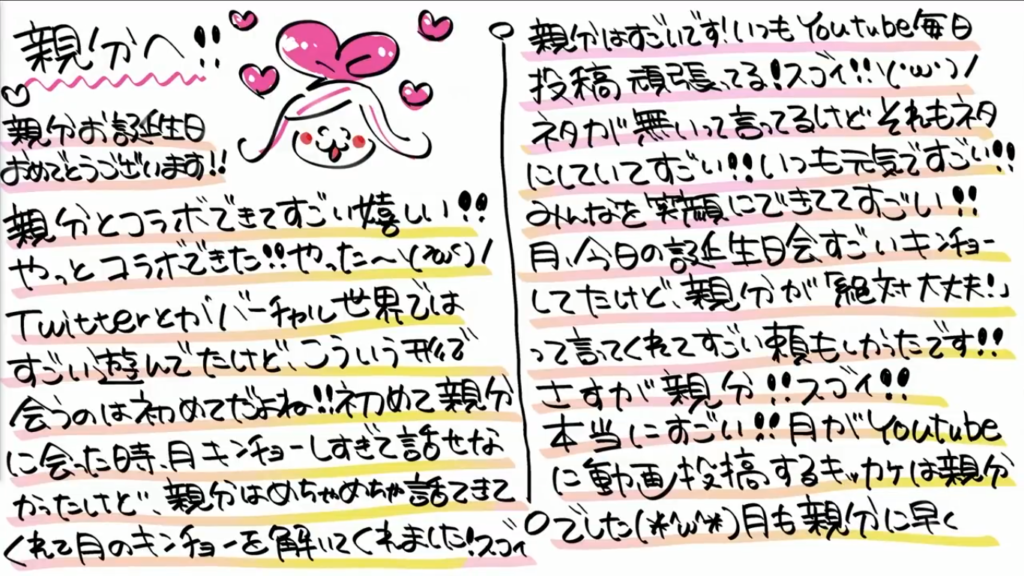 親分へ!!
親分お誕生日
おめでとうございます!!
親分とコラボできてすごい嬉しい!!
やっとコラボできた!!やった〜\('ω')/
Twitterとかバーチャル世界では
すごい遊んでたけど、こういう形で
会うのは初めてだよね!!初めて親分
に会った時、月キンチョーしすぎて話せな
かったけど、親分はめちゃめちゃ話てきて
くれて月のキンチョーを解いてくれました!スゴイ
親分はすごいです!いつもYoutube毎日
投稿頑張ってる!スゴイ!!('ω')/
ネタが無いって言ってるけどそれもネタ
にしていてすごい!!いつも元気ですごい!!
みんなを笑顔にできててすごい!!
月、今日の誕生日会、すごいキンチョー
してたけど、親分が「絶対大丈夫!」
って言ってくれてすごい頼もしかったです!!
さすが親分!!スゴイ!!
本当にすごい!!月がYoutube
に動画投稿するキッカケは親分
でした(*^ω^*)月も親分に早く